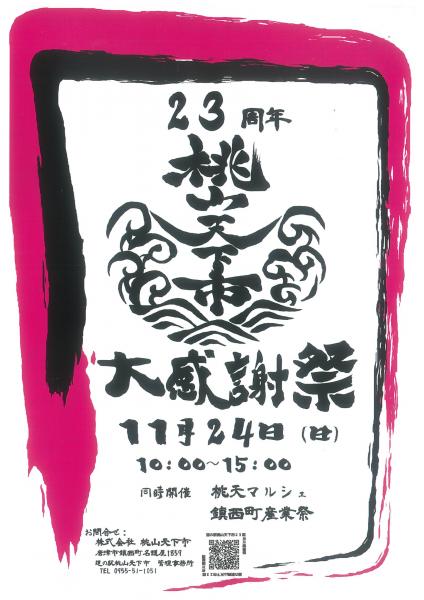 23周年
桃山天下市
大感謝祭
11月24日(日)
10:00~15:00
同時開催 桃天マルシェ
鎮西町産業祭
お問合せ:
株式会社 桃山天下市
唐津市鎮西町名護屋1859
道の駅桃山天下市 管理事務所
TEL 0955-51-1051